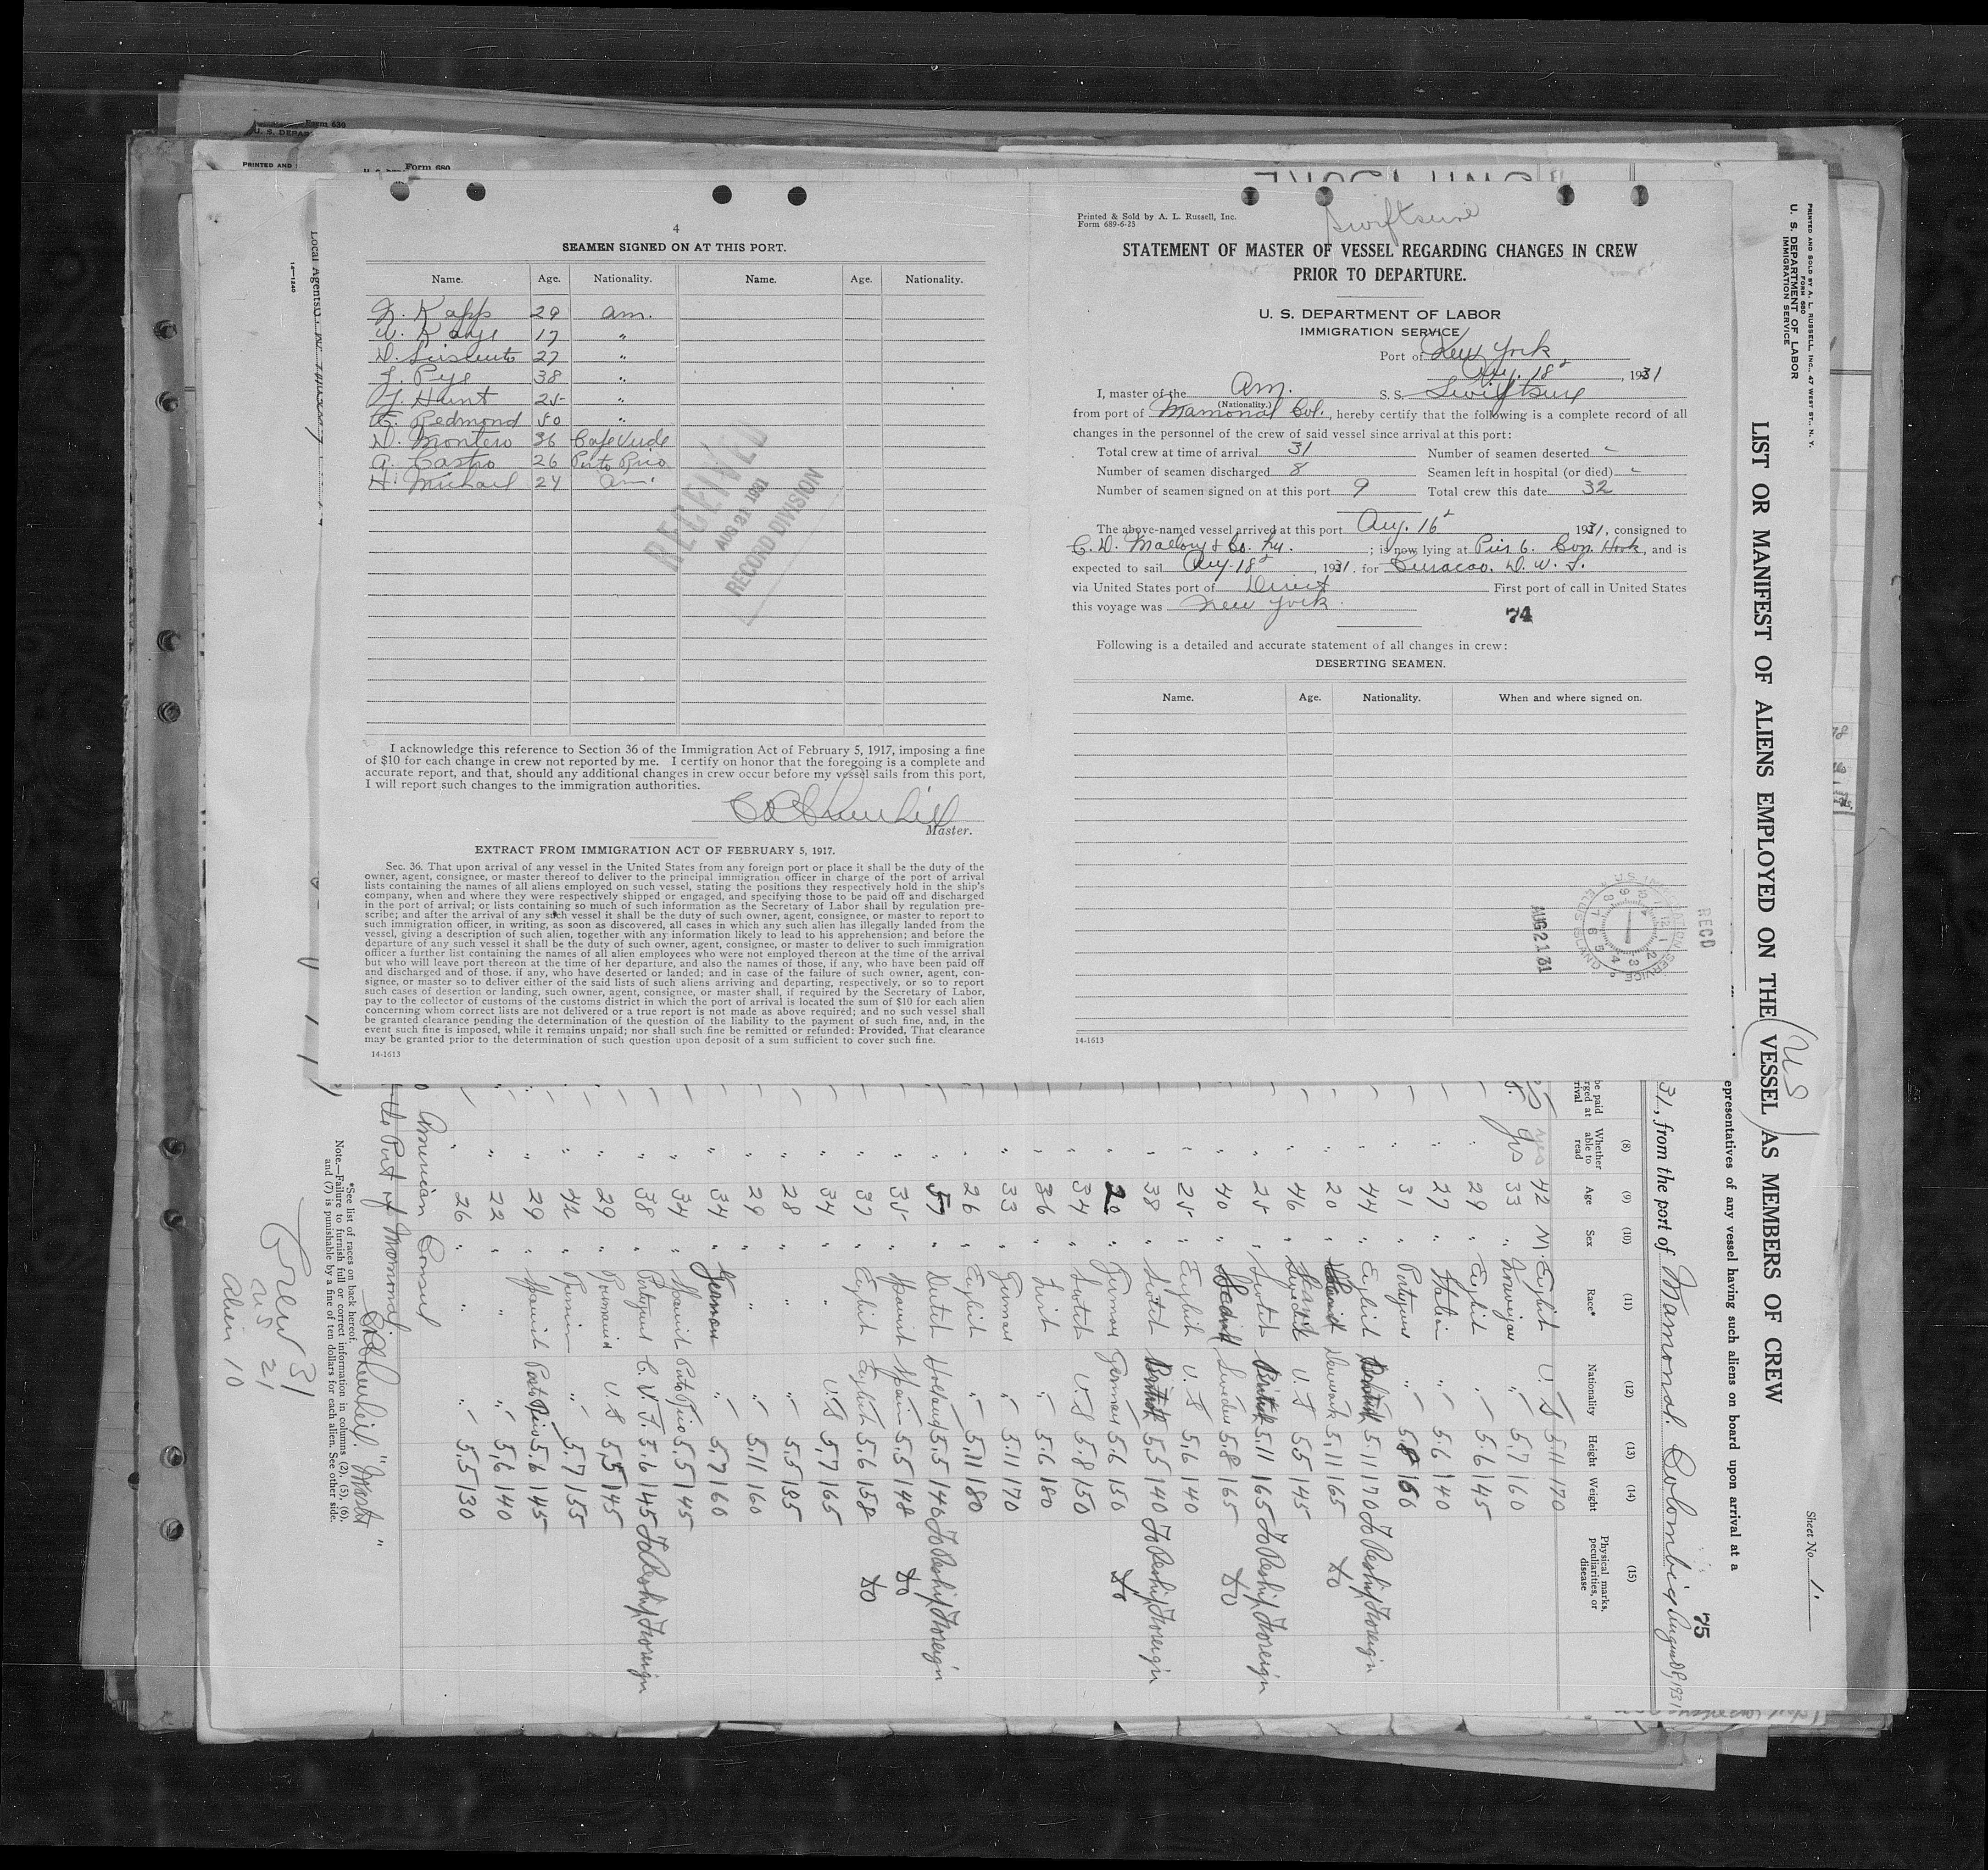 4
SEAMEN SIGNED ON AT THIS PORT.
Name. Age. Nationality. Name. Age. Nationality.
Kapp 29 Am.
W. Kaye 17 "
D. 27 "
J. Pye 38 "
J. Hunt 25 "
Redmond 50 "
D. Montero 36 Cape Verde
A. Castro 26 Porto Rico
H. Michael 24 Am.
RECEIVED
AUG 21 1931
RECORD DIVISION
I acknowledge this reference to Section 36 of the Immigration Act of February 5, 1917, imposing a fine
of $10 for each change in crew not reported by me. I certify on honor that the foregoing is a complete and
accurate report, and that, should any additional changes in crew occur before my vessel sails from this port,
I will report such changes to the immigration authorities.
Master.
EXTRACT FROM IMMIGRATION ACT OF FEBRUARY 5, 1917.
Sec. 36. That upon arrival of any vessel in the United States from any foreign port or place it shall be the duty of the
owner, agent, consignee, or master thereof to deliver to the principal immigration officer in charge of the port of arrival
lists containing the names of all aliens employed on such vessel, stating the positions they respectively hold in the ship's
company, when and where they were respectively shipped or engaged, and specifying those to be paid off and discharged
in the port of arrival; or lists containing so much of such information as the Secretary of Labor shall by regulation pre-
scribe; and after the arrival of any such vessel it shall be the duty of such owner, agent, consignee, or master to report to
such immigration officer, in writing, as soon as discovered, all cases in which any such alien has illegally landed from the
vessel, giving a description of such alien, together with any information likely to lead to his apprehension; and before the
departure of any such vessel it shall be the duty of such owner, agent, consignee, or master to deliver to such immigration
officer a further list containing the names of all alien employees who were not employed thereon at the time of the arrival
but who will leave port thereon at the time of her departure, and also the names of those, if any, who have been paid off
and discharged and of those. if any, who have deserted or landed; and in case of the failure of such owner, agent, con-
signee, or master so to deliver either of the said lists of such aliens arriving and departing, respectively, or so to report
such cases of desertion or landing, such owner, agent, consignee, or master shall, if required by the Secretary of Labor,
pay to the collector of customs of the customs district in which the port of arrival is located the sum of $10 for each alien
concerning whom correct lists are not delivered or a true report is not made as above required; and no such vessel shall
be granted clearance pending the determination of the question of the liability to the payment of such fine, and, in the
event such fine is imposed, while it remains unpaid; nor shall such fine be remitted or refunded: Provided, That clearance
may be granted prior to the determination of such question upon deposit of a sum sufficient to cover such fine.
14-1613
Printed & Sold by A. L. Russell, Inc.
Form 689-6-25
Swiftsure
STATEMENT OF MASTER OF VESSEL REGARDING CHANGES IN CREW
PRIOR TO DEPARTURE.
U. S. DEPARTMENT OF LABOR
IMMIGRATION SERVICE
Port of New York
Aug. 18, 1931
I, master of the Am. S. S. Swiftsure
(Nationality.)
from port of Mamonal Col., hereby certify that the following is a complete record of all
changes in the personnel of the crew of said vessel since arrival at this port:
Total crew at time of arrival 31 Number of seamen deserted -
Number of seamen discharged 8 Seamen left in hospital (or died) -
Number of seamen signed on at this port 9 Total crew this date 32
The above-named vessel arrived at this port Aug. 16 1931, consigned to
C. D. Mallory & Co. ; is now lying at Pier 6. Con. Hook, and is
expected to sail Aug. 18, 1931. for Curacao. D. W. I.
via United States port of Direct First port of call in United States
this voyage was New York.
74
Following is a detailed and accurate statement of all changes in crew:
DESERTING SEAMEN.
Name. Age. Nationality. When and where signed on.
RECD
U.S. IMMIGRATION SERVICE
ELLIS ISLAND
AUG 21 31
14-1613
PRINTED AND SOLD BY A. L. RUSSELL, INC., 47 WEST ST., N. Y.
FORM 680
U. S. DEPARTMENT OF LABOR
IMMIGRATION SERVICE
Sheet No. 1.
LIST OR MANIFEST OF ALIENS EMPLOYED ON THE VESSEL AS MEMBERS OF CREW
US
epresentatives of any vessel having such aliens on board upon arrival at a
75
31, from the port of Mamonal. Colombia, August 1931
(8) (9) (10) (11) (12) (13) (14) (15)
Whether able to read Age Sex Race* Nationality Height Weight Physical marks, peculiarities, or disease
yes 42 M. English U. S 5.11 170
yes 33 " Norwegian " 5.7 160
" 29 " English " 5.6 145
" 27 " Italian " 5.6 140
" 31 " Portuguese " 5.8 160
" 44 " English British 5.11 170 To Reship Foreign
" 20 " Danish Denmark 5.11 165 do
" 46 " Swedish U. S 5.5 145
" 25 " Scotch British 5.11 165 To Reship Foreign
" 40 " Swedish Sweden 5.8 165 do
" 25 " English U. S 5.6 140
" 38 " Scotch British 5.5 140 To Reship Foreign
" 20 " German German 5.6 150 do
" 34 " Scotch U. S 5.8 150
" 36 " Irish " 5.6 180
" 33 " German " 5.11 170
" 26 " English " 5.11 180
" 57 " Dutch Holland 5.5 146 To Reship Foreign
" 35 " Spanish Spain 5.5 148 do
" 37 " English English 5.6 158 do
" 34 " " U. S 5.7 165
" 28 " " " 5.5 135
" 29 " " " 5.11 160
" 34 " German " 5.7 160
" 34 " Spanish Porto Rico 5.5 145
" 38 " Portuguese C. V. I. 5.6 145 To Reship Foreign
" 29 " U S 5.5 145
" 42 " " 5.7 155
" 29 " Spanish Porto Rico 5.6 145
" 22 " " " 5.6 140
" 26 " " " 5.5 130
American Consul
the Port of Mamonal
"Master"
*See list of races on back hereof.
Note.—Failure to furnish full or correct information in columns (2), (5), (6),
and (7) is punishable by a fine of ten dollars for each alien. See other side.
Crew 31
US 21
Alien 10
Local Agents
14-1240
Form 680
PRINTED AND
Form 630
U. S. DEPAR